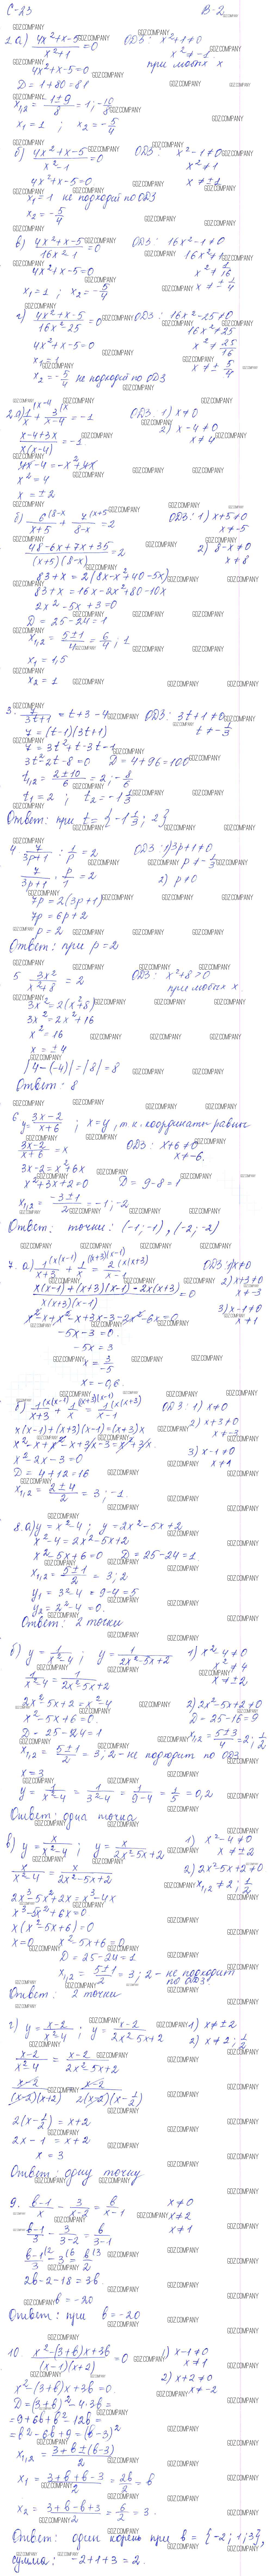 С-23 В-2
1. а) (4x²+x-5)/(x²+1) = 0 ОДЗ: x²+1≠0
x²≠-1
4x²+x-5=0 при любых x
D = 1+80=81
x₁,₂ = (1±9)/8 = 1; -10/8
x₁=1 ; x₂ = -5/4
б) (4x²+x-5)/(x²-1) = 0 ОДЗ: x²-1≠0
x²≠1
4x²+x-5=0 x≠±1
x₁=1 не подходит по ОДЗ
x₂ = -5/4
в) (4x²+x-5)/(16x²-1) = 0 ОДЗ: 16x²-1≠0
16x²≠1
4x²+x-5=0 x²≠1/16
x₁=1 ; x₂=-5/4 x≠±1/4
г) (4x²+x-5)/(16x²-25) = 0 ОДЗ: 16x²-25≠0
16x²≠25
4x²+x-5=0 x²≠25/16
x₁=1 x≠±5/4
x₂=-5/4 не подходит по ОДЗ
2. а) 1/x (x-4 + 3/(x-4) (x = -1 ОДЗ: 1) x≠0
2) x-4≠0
(x-4+3x)/(x(x-4)) = -1 x≠4
4x-4=-x²+4x
x²=4
x=±2
б) 6/(x+5) (8-x + 7/(8-x) (x+5 = 2 ОДЗ: 1) x+5≠0
x≠-5
(48-6x+7x+35)/((x+5)(8-x)) = 2 2) 8-x≠0
x≠8
83+x=2(8x-x²+40-5x)
83+x=16x-2x²+80-10x
2x²-5x+3=0
D=25-24=1
x₁,₂ = (5±1)/4 = 6/4; 1
x₁=1,5
x₂=1
3. 7/(3t+1) = t+3-4 ОДЗ: 3t+1≠0
7=(t-1)(3t+1) t≠-1/3
7=3t²+t-3t-1
3t²-2t-8=0 D=4+96=100
t₁,₂ = (2±10)/6 = 2; -8/6
t₁=2 ; t₂=-1 1/3
Ответ: при t={-1 1/3; 2}
4. 7/(3p+1) : 1/p = 2 ОДЗ: 1) 3p+1≠0
p≠-1/3
7/(3p+1) · p/1 = 2 2) p≠0
7p=2(3p+1)
7p=6p+2
p=2
Ответ: при p=2
5. 3x²/(x²+8) = 2 ОДЗ: x²+8>0
при любых x
3x²=2(x²+8)
3x²=2x²+16
x²=16
x=±4
|4-(-4)|=|8|=8
Ответ: 8
6. y=(3x-2)/(x+6) ; x=y, т.к. координаты равны
(3x-2)/(x+6) = x ОДЗ: x+6≠0
x≠-6.
3x-2=x²+6x
x²+3x+2=0 D=9-8=1
x₁,₂ = (-3±1)/2 = -1; -2
Ответ: точки: (-1;-1), (-2;-2)
7. а) 1/(x+3) (x(x-1) + 1/x (x+3)(x-1) = 2/(x-1) (x(x+3) ОДЗ: 1) x≠0
2) x+3≠0
(x(x-1)+(x+3)(x-1)-2x(x+3))/(x(x+3)(x-1)) = 0 x≠-3
3) x-1≠0
x²-x+x²-x+3x-3-2x²-6x=0 x≠1
-5x-3=0.
-5x=3
x=3/-5
x=-0,6.
б) 1/(x+3) (x(x-1) + 1/x (x+3)(x-1) = 1/(x-1) (x(x+3) ОДЗ: 1) x≠0
x(x-1)+(x+3)(x-1)=(x+3)x 2) x+3≠0
x≠-3
x²-x+x²-x+3x-3=x²+3x 3) x-1≠0
x²-2x-3=0 x≠1
D=4+12=16
x₁,₂ = (2±4)/2 = 3; -1
8. а) y=x²-4 ; y=2x²-5x+2
x²-4=2x²-5x+2
x²-5x+6=0 D=25-24=1
x₁,₂ = (5±1)/2 = 3; 2
y₁=3²-4=9-4=5
y₂=2²-4=0.
Ответ: 2 точки
б) y=1/(x²-4) ; y=1/(2x²-5x+2) 1) x²-4≠0
x²≠4
1/(x²-4) = 1/(2x²-5x+2) x≠±2
2x²-5x+2=x²-4 2) 2x²-5x+2≠0
x²-5x+6=0. D=25-16=9
D=25-24=1 x₁,₂=(5±3)/4=2; 1/2
x₁,₂ = (5±1)/2 = 3; 2 - не подходит по ОДЗ
x=3
y=1/(x²-4) = 1/(3²-4) = 1/(9-4) = 1/5 = 0,2
Ответ: одна точка
в) y=x/(x²-4) ; y=x/(2x²-5x+2) 1) x²-4≠0
x≠±2
x/(x²-4) = x/(2x²-5x+2) 2) 2x²-5x+2≠0
x₁,₂≠2; 1/2
2x³-5x²+2x=x³-4x
x³-5x²+6x=0
x(x²-5x+6)=0
x=0 x²-5x+6=0
D=25-24=1
x₁,₂ = (5±1)/2 = 3; 2 - не подходит
по ОДЗ
Ответ: 2 точки
г) y=(x-2)/(x²-4) ; y=(x-2)/(2x²-5x+2) 1) x≠±2
2) x≠2; 1/2
(x-2)/(x²-4) = (x-2)/(2x²-5x+2)
(x-2)/((x-2)(x+2)) = (x-2)/(2(x-2)(x-1/2))
2(x-1/2)=x+2
2x-1=x+2
x=3
Ответ: одну точку
9. (b-1)/x - 3/(x-2) = b/(x-1) x≠0
x≠2
(b-1)/3 - 3/(3-2) = b/(3-1) x≠1
(b-1)/3 (2 - 3 (6 = b/2 (3
2b-2-18=3b
b=-20
Ответ: при b=-20
10. (x²-(3+b)x+3b)/((x-1)(x+2)) = 0 1) x-1≠0
x≠1
x²-(3+b)x+3b=0. 2) x+2≠0
D=(3+b)²-4·3b= x≠-2
=9+6b+b²-12b=
=b²-6b+9=(b-3)²
x₁,₂ = (3+b±(b-3))/2
x₁ = (3+b+b-3)/2 = 2b/2 = b
x₂ = (3+b-b+3)/2 = 6/2 = 3.
Ответ: один корень при b={-2; 1; 3},
сумма: -2+1+3=2.